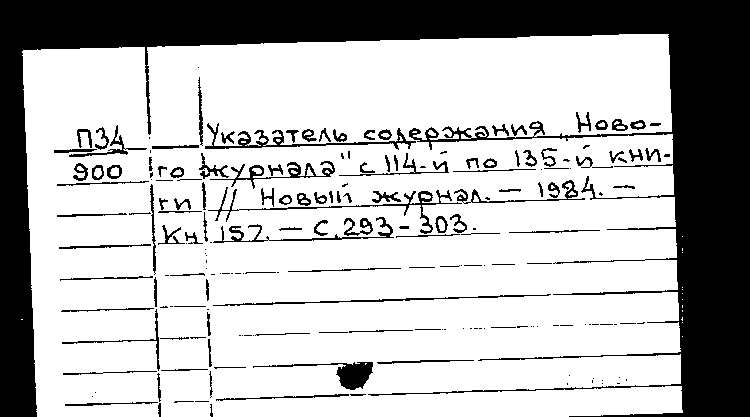 П34 Указатель содержания „Ново-
900 го журнала" с 114-й по 135-й кни-
ги // Новый журнал. — 1984. —
Кн 157. — С. 293-303.